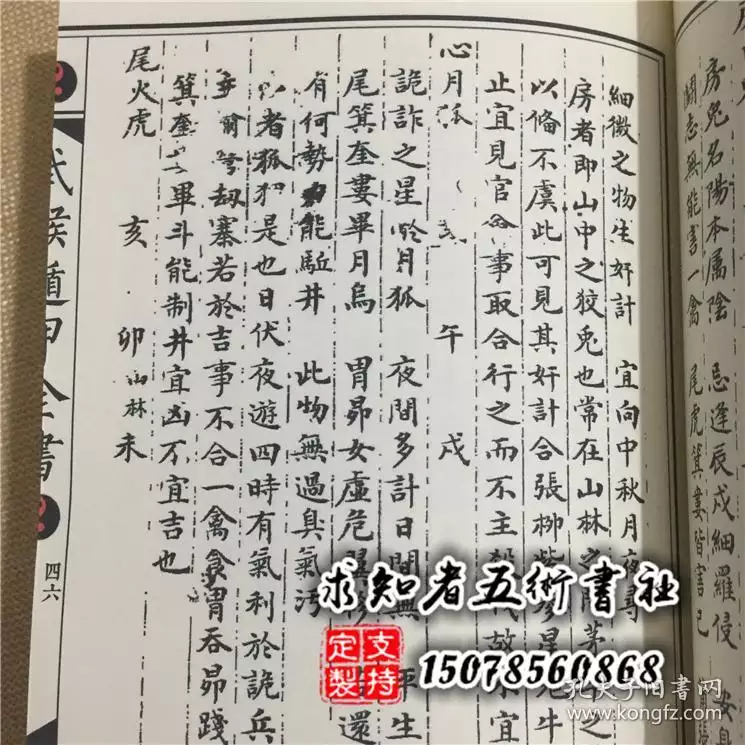 房兔名陽本屬陰　忌逢辰戌細羅侵
鬬志無能害一禽　尾虎箕婁皆害己
細微之物生奸計　宜向中秋月夜尋
房者即山中之狡兔也常在山林之間茅之
以備不虞此可見其奸計合張柳觜參星危牛
止宜見官令事取合行之而不主故不宜
心月狐　亥　午　戌
詭詐之星號月狐　夜間多計日間無　平生
尾箕奎婁畢月烏　胃昴女虛危翼　還
有何勢能駈井　此物無過臭氣污
者狐狸是也日伏夜遊四時有氣利於詭兵
刼寨若於吉事不合一禽食胃吞昴踐
箕奎畢斗能制井宜凶不宜吉也
尾火虎　亥　卯山林未
武候遁甲全書
四六
求知者五術書社
支持定製
15078560868
孔夫子旧書网
www.kongfz.com